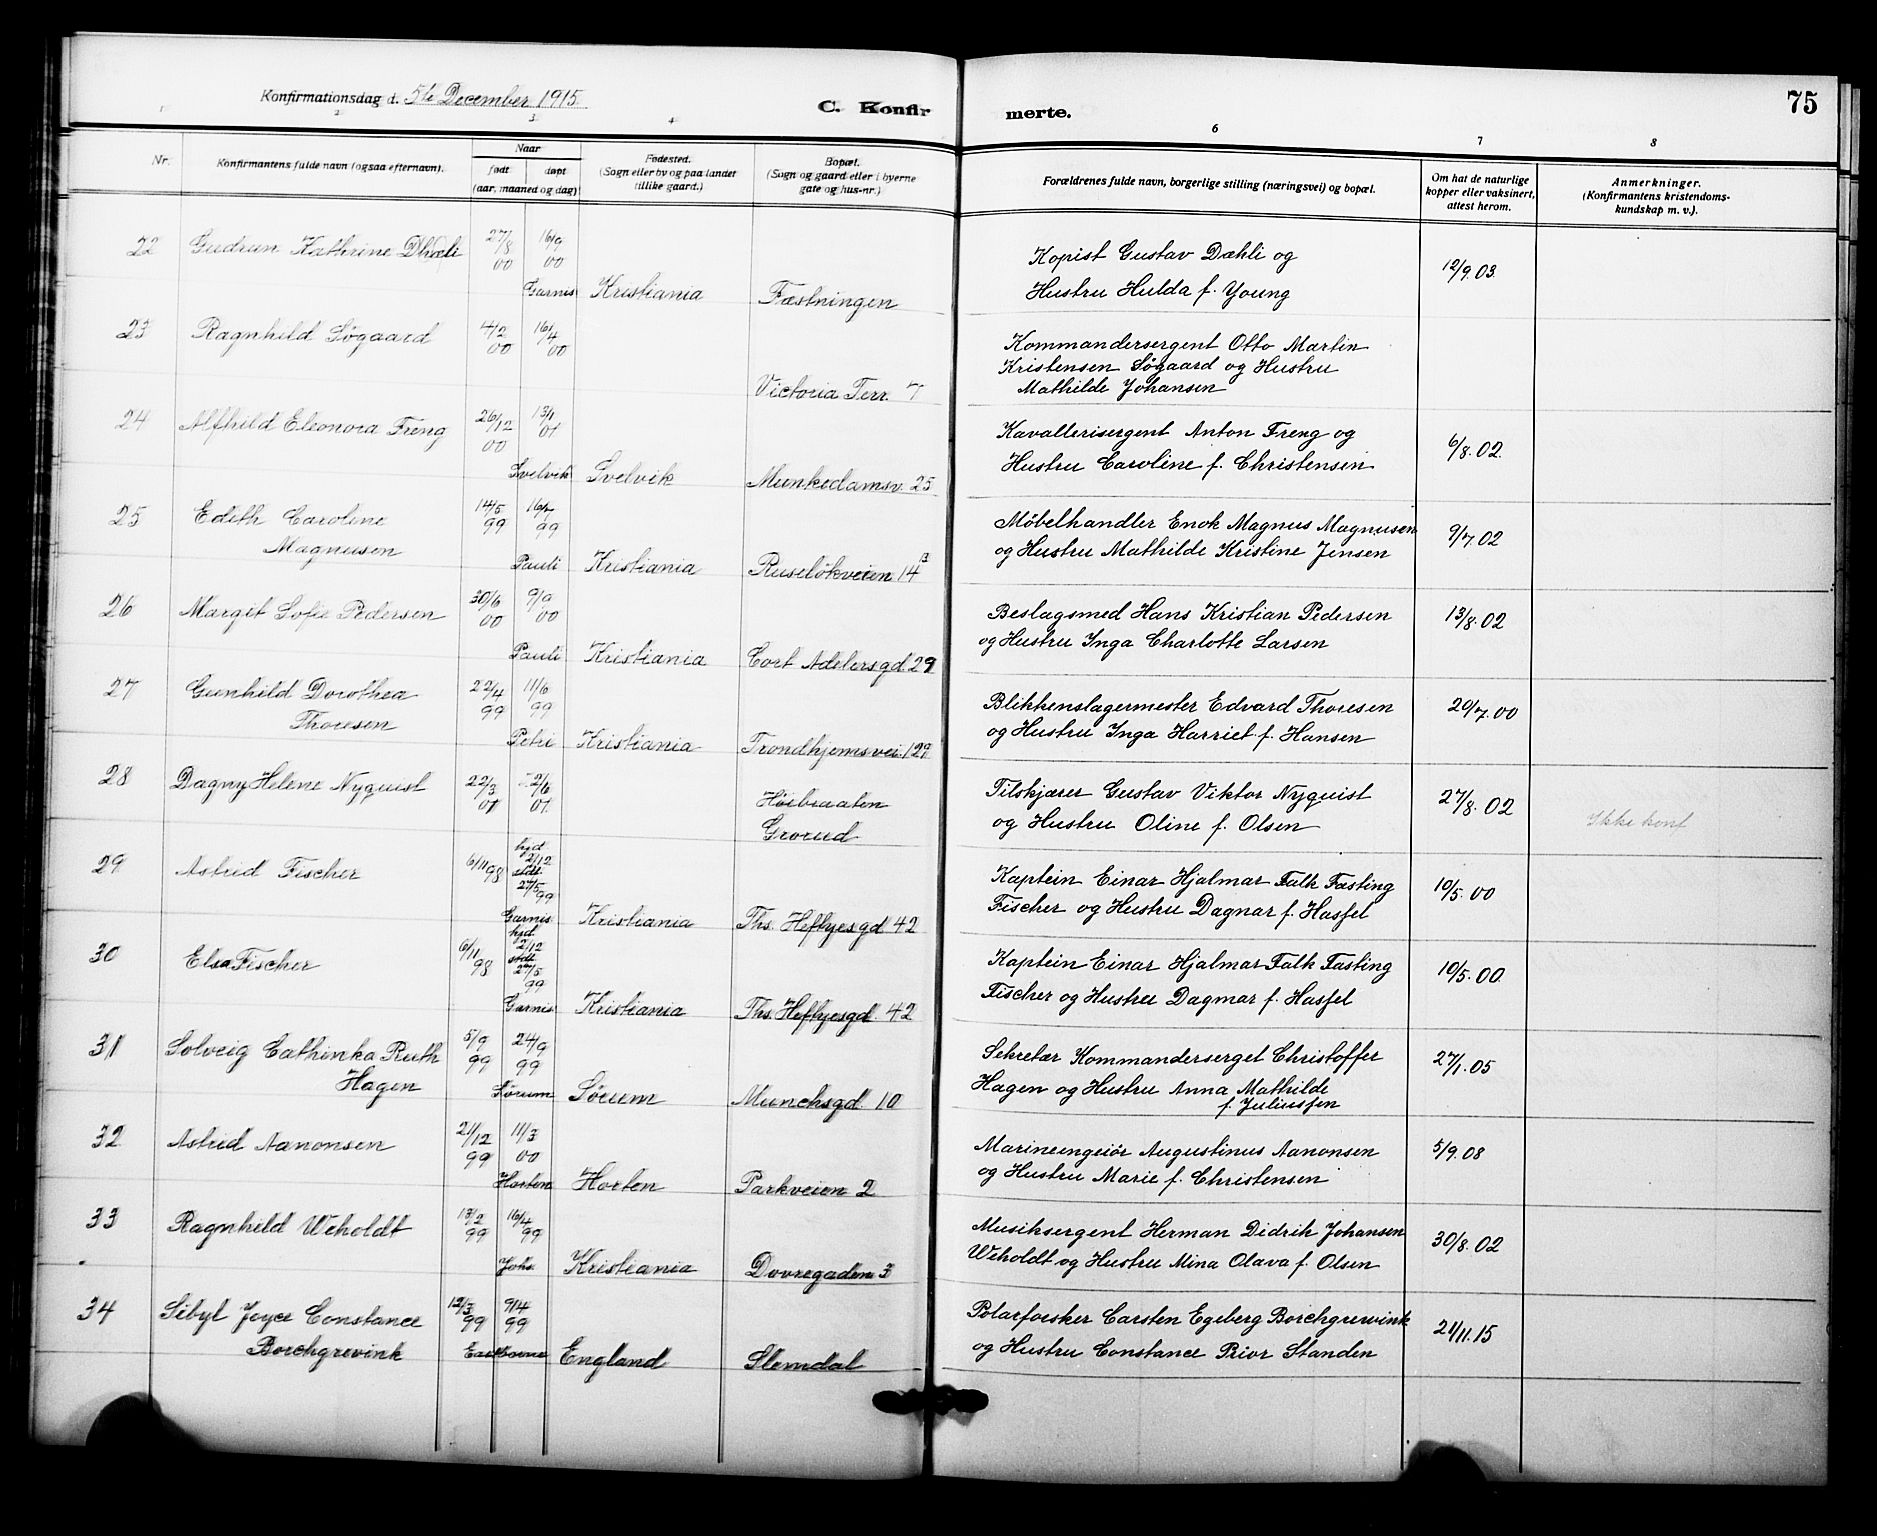 Konfirmationsdag d. 5te December 1915.
C. Konfir
merte.
75
2 3 4 6 7 8
Nr.
Konfirmantens fulde navn (ogsaa efternavn).
Naar
født døpt
(aar, maaned og dag)
Fødested.
(Sogn eller by og paa landet
tillike gaard.)
Bopæl.
(Sogn og gaard eller i byerne
gate og hus-nr.)
Forældrenes fulde navn, borgerlige stilling (næringsvei) og bopæl.
Om hat de naturlige
kopper eller vaksinert,
attest herom.
Anmerkninger.
(Konfirmantens kristendoms-
kundskap m. v.).
22 Gudrun Kathrine 27/8 00 16/9 00
Garnis. Kristiania Fæstningen
Kopist Gustav Dæhli og
Hustru Hulda f. Young
12/9.03.
23 Ragnhild Søgaard 4/2 00 16/4 00
Victoria Terr. 7
Kommandersergent Otto Martin
Kristensen Søgaard og Hustru
Mathilde Johansen
24 Alfhild Eleonora Freng 26/12 00 13/1 01
Svelvik Svelvik Munkedamsv. 25
Kavallerisergent Anton Freng og
Hustru Caroline f. Christensen
6/8.02.
25 Edith Caroline 14/5 99 16/7 99
Magnusen
Pauli Kristiania Ruseløkveien 14 B
Møbelhandler Enok Magnus Magnusen
og Hustru Mathilde Kristine Jensen
9/7.02
26 Margit Sofie Pedersen 30/6 00 9/9 00
Pauli Kristiania Cort Adelersgd. 29
Beslagsmed Hans Kristian Pedersen
og Hustru Inga Charlotte Larsen
13/8.02
27 Gunhild Dorothea 22/4 99 11/6 99
Thoresen
Petri Kristiania Trondhjemsvei 129
Blikkenslagermester Edvard Thoresen
og Hustru Inga Harriet f. Hansen
20/7.00
28 Dagny Helene Nyquist 22/3 01 2/6 01.
Høibraaten
Grorud
Tilskjærer Gustav Viktor Nyquist
og Hustru Oline f. Olsen
27/8.02
Ikke konf
29 Astrid Fischer 6/11 98 hjd. 2/12 stdf. 27/5 99
Garnis. Kristiania Ths. Heftyesgd 42
Kaptein Einar Hjalmar Falk Fasting
Fischer og Hustru Dagnar f. Hasfel
10/5.00
30 Elsa Fischer 6/11 98 hjd. 2/12 stdf. 27/5 99
Garnis. Kristiania Ths. Heftyesgd. 42
Kaptein Einar Hjalmar Falk Fasting
Fischer og Hustru Dagmar f. Hasfel
10/5.00.
31 Solveig Cathinka Ruth 5/9 99 24/9 99
Hagen
Sørum Sørum Munchsgd. 10
Sekretær Kommanderserget Christoffer
Hagen og Hustru Anna Mathilde
f. Juliussen
27/1.05
32 Astrid Aanonsen 21/12 99 11/3 00
Horten Horten Parkveien 2
Marineingeiør Augustinus Aanonsen
og Hustru Marie f. Christensen
5/9.08
33 Ragnhild Weholdt 13/2 99 16/4 99
Johs. Kristiania Dovregaden 3
Musiksergent Herman Didrik Johansen
Weholdt og Hustru Mina Olava f. Olsen
30/8.02
34 Sibyl Joyce Constance 12/3 99 9/4 99
Borchgrevink
England Slemdal
Polarforsker Carsten Egeberg Borchgrevink
og Hustru Constance Prior Standen
21/11.15